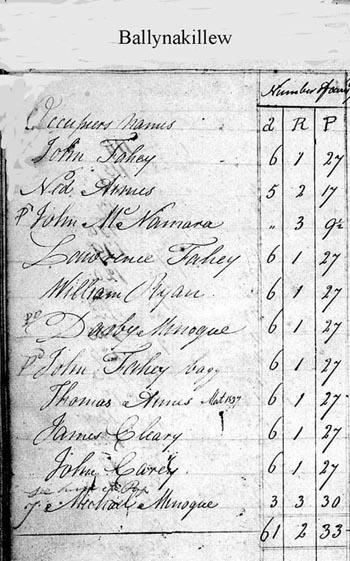 Ballynakillew
Number of
Occupiers Names a R P
John Fahey 6 1 27
Ned Armes 5 2 17
P John McNamara " 3 9½
Lawrence Fahey 6 1 27
William Ryan 6 1 27
po Darby Minoque 6 1 27
po John Fahey 6 1 27
Thomas Armes 1837 6 1 27
James Cleary 6 1 27
John Carey 6 1 27
Michael Minoque 3 3 30
61 2 33